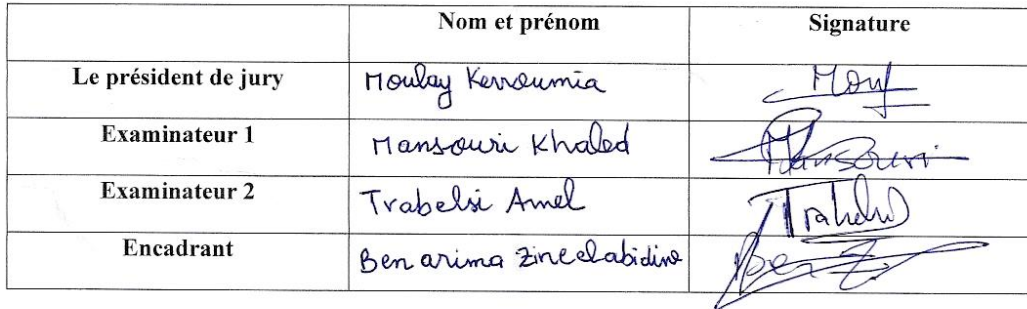 Nom et prénom Signature
Le président de jury Moulay Kerroumia
Examinateur 1 Mansouri Khaled Mansouri
Examinateur 2 Trabelsi Amel
Encadrant Ben arima Zineelabidine